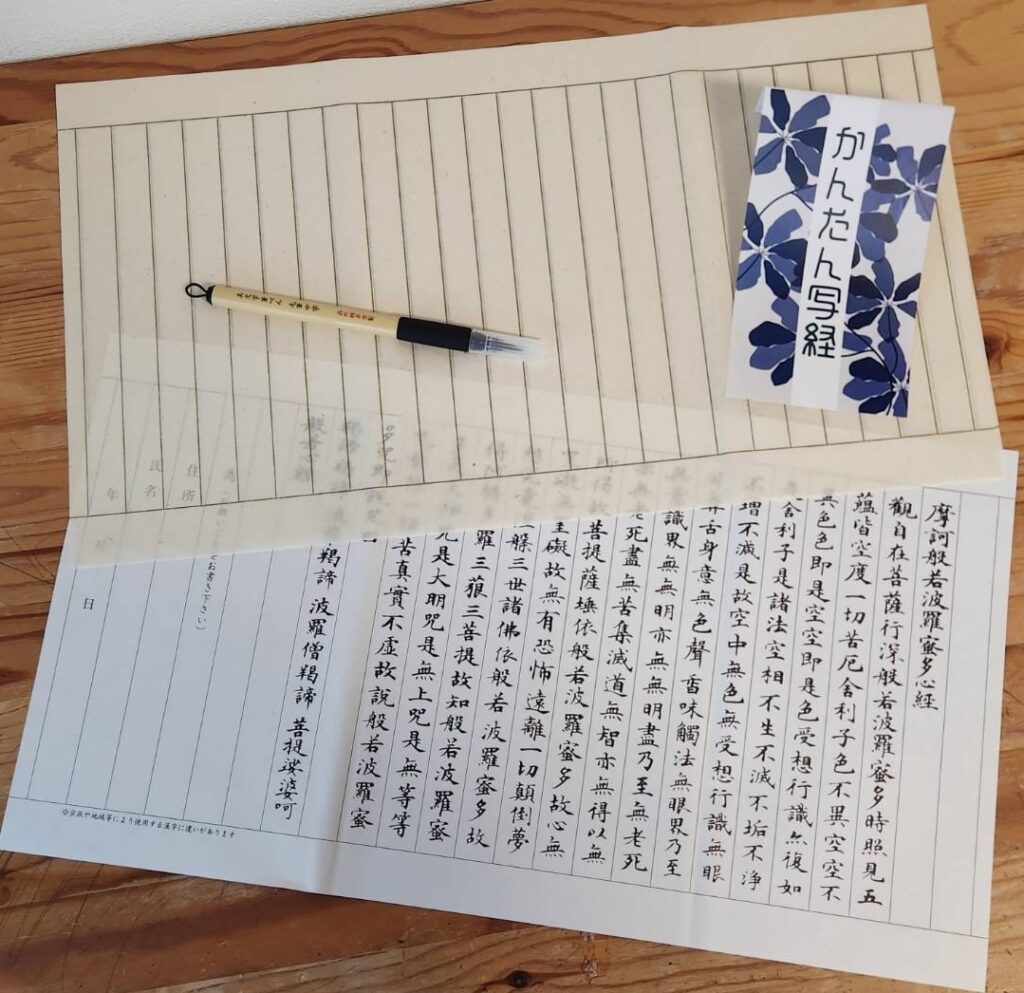 かんたん写経
摩訶般若波羅蜜多心経
觀自在菩薩行深般若波羅蜜多時照見五
蘊皆空度一切苦厄舍利子色不異空空不
異色色即是空空即是色受想行識亦復如
舍利子是諸法空相不生不滅不垢不浄
不増不減是故空中無色無受想行識無眼
舌身意無色聲香味觸法無眼界乃至
識界無無明亦無無明盡乃至無老死
老死盡無苦集滅道無智亦無得以無
菩提薩埵依般若波羅蜜多故心無
罣礙故無有恐怖遠離一切顛倒夢
槃三世諸佛依般若波羅蜜多故
羅三藐三菩提故知般若波羅蜜
咒是大明咒是無上咒是無等等
苦真實不虛故說般若波羅蜜
多咒即說咒曰
羯諦 波羅僧羯諦 菩提娑婆訶
お書き下さい）
住所
氏名
年
日
※宗派や地域等により使用する漢字に違いがあります